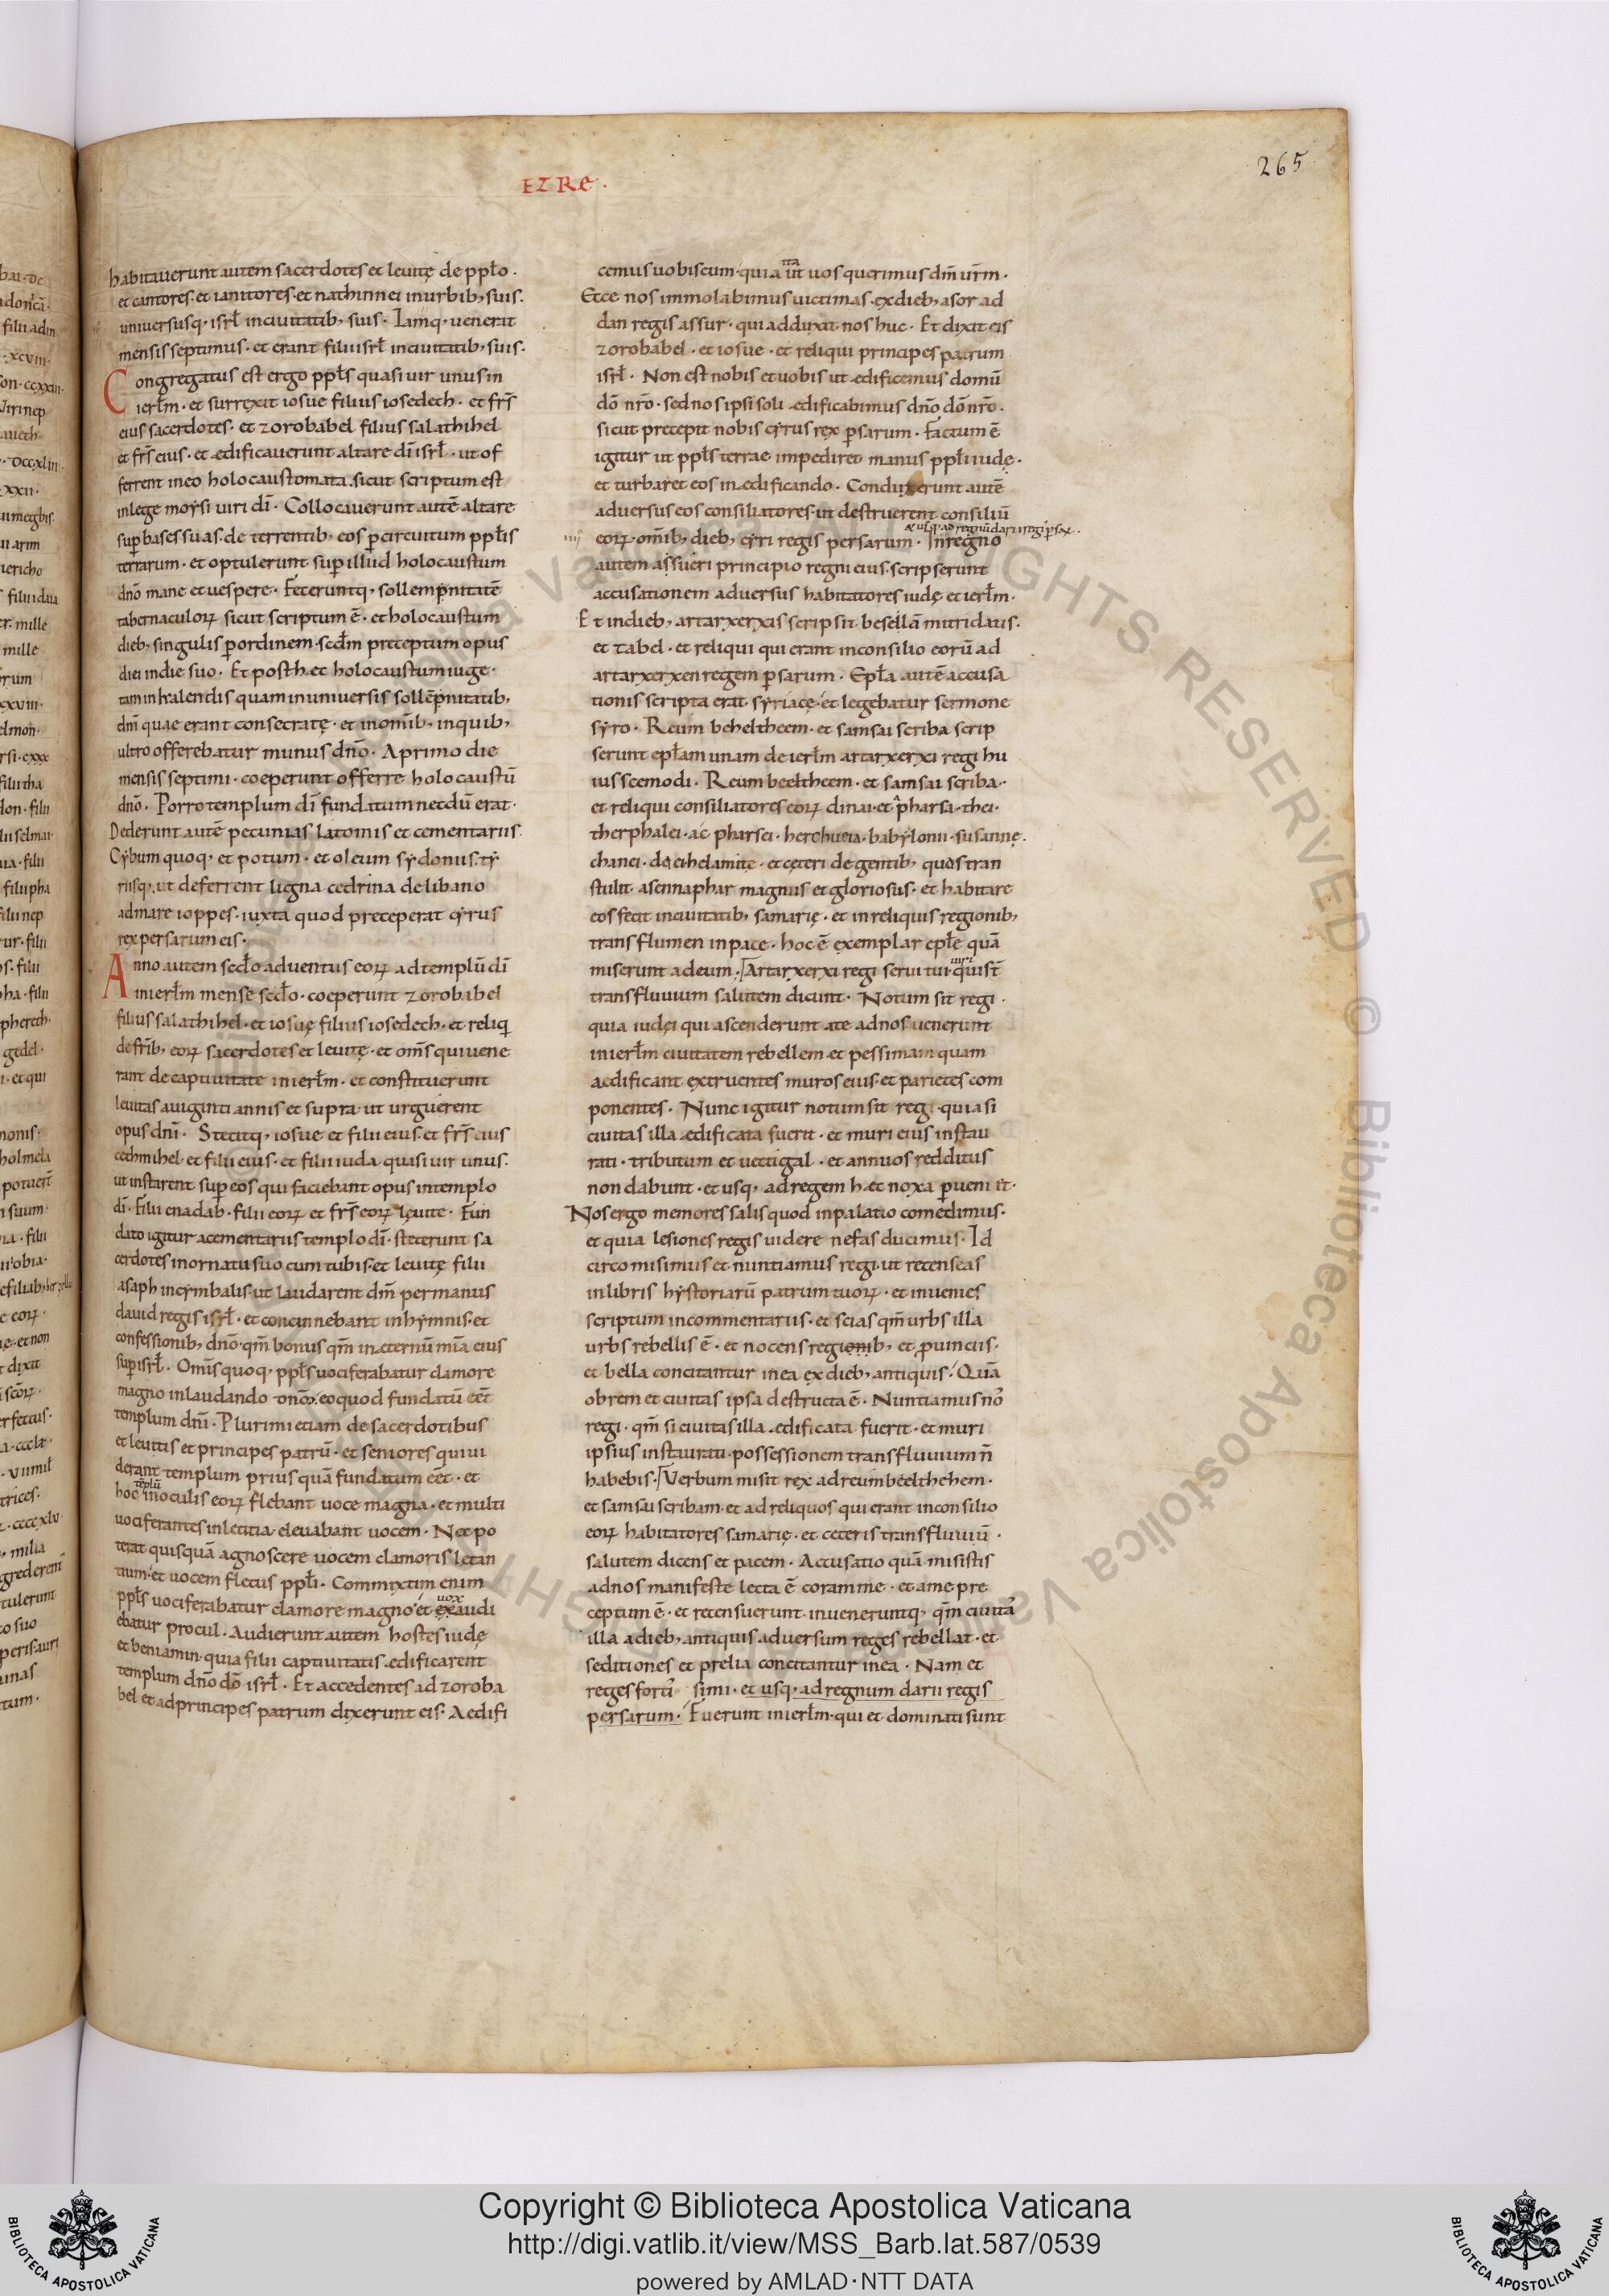 EZRE.
265
habitauerunt autem sacerdotes et leuitę de pplo.
et cantores. et ianitores. et nathinnei in urbib; suis.
uniuersusq; isrł in ciuitatib; suis. Iamq; uenerat
mensis septimus. et erant filii isrł in ciuitatib; suis.
Congregatus est ergo ppłs quasi uir unus in
ierłm. et surrexit iosue filius iosedech. et frs̄
eius sacerdotes. et zorobabel filius salathihel
et frs̄ eius. et ędificauerunt altare dī isrł. ut of
ferrent in eo holocaustomata. sicut scriptum est
in lege moysi uiri dī. Collocauerunt autē altare
sup bases suas. de terrentib; eos p circuitum ppłis
terrarum. et optulerunt sup illud holocaustum
dn̄o mane et uespere. Feceruntq; sollempnitatē
tabernaculoꝝ sicut scriptum ē. et holocaustum
dieb; singulis p ordinem. scd̄m preceptum opus
diei in die suo. Et post hęc holocaustum iuge.
tam in kalendis quam in uniuersis sollēpnitatib;
dn̄i quae erant consecratę. et in om̄ib; in quib;
ultro offerebatur munus dn̄o. A primo die
mensis septimi. coeperunt offerre holocaustū
dn̄o. Porro templum dī fundatum necdū erat.
Dederunt autē pecunias latomis et cementariis.
Cybum quoq; et potum. et oleum sydoniis. ty
riisq; ut deferrent ligna cedrina de libano
ad mare ioppes. iuxta quod preceperat cyrus
rex persarum eis.
Anno autem scd̄o aduentus eoꝝ ad templū dī
in ierłm mense scd̄o. coeperunt zorobabel
filius salathihel. et iosuę filius iosedech. et reliq
de frīb; eoꝝ sacerdotes et leuitę. et om̄s qui uene
rant de captiuitate in ierłm. et constituerunt
leuitas a uiginti annis et supra. ut urguerent
opus dn̄i. Stetitq; iosue et filii eius. et frs̄ eius
cedmihel. et filii eius. et filii iuda quasi uir unus.
ut instarent sup eos qui faciebant opus in templo
dī. Filii enadab. filii eoꝝ et frs̄ eoꝝ leuitę. Fun
dato igitur a cementariis templo dī. steterunt sa
cerdotes in ornatu suo cum tubis. et leuitę filii
asaph in cymbalis. ut laudarent dm̄ per manus
dauid regis isrł. et concinnebant in hymnis. et
confessionib; dn̄o. qm̄ bonus qm̄ in ęternū mīa eius
sup isrł. Omīs quoq; ppłs uociferabatur clamore
magno in laudando dn̄o. eo quod fundatū eēt
templum dn̄i. Plurimi etiam de sacerdotibus
et leuitis et principes patrū. et seniores qui ui
derant templum prius quā fundatum eēt. et
hoc templū in oculis eoꝝ flebant uoce magna. et multi
uociferantes in letitia eleuabant uocem. Nec po
terat quisquā agnoscere uocem clamoris letan
tium. et uocem fletus ppłi. Commixtim enim
ppłs uociferabatur clamore magno. et uox exaudi
ebatur procul. Audierunt autem hostes iudę
et beniamin. quia filii captiuitatis ędificarent
templum dn̄o dō isrł. Et accedentes ad zoroba
bel et ad principes patrum dixerunt eis. Aedifi
cemus uobiscum. quia ita ut uos querimus dm̄ urm̄.
Ecce nos immolabimus uictimas. ex dieb; asor ad
dan regis assur. qui adduxit nos huc. Et dixit eis
zorobabel. et iosue. et reliqui principes patrum
isrł. Non est nobis et uobis ut ędificemus domū
dō nr̄o. sed nos ipsi soli ędificabimus dn̄o dō nr̄o.
sicut precepit nobis cyrus rex p̄sarum. Factum ē
igitur ut ppłs terrae impediret manus ppłi iudę.
et turbaret eos in ędificando. Conduxerunt autē
aduersus eos consiliatores. ut destruerent consiliū
et usq; ad regnū darii regis p̄saꝝ.
iiii eoꝝ om̄ib; dieb; cyri regis persarum. In regno
autem assueri principio regni eius. scripserunt
accusationem aduersus habitatores iudę et ierłm.
Et in dieb; artarxerxis scripsit. besellā mitridatis.
et tabel. et reliqui qui erant in consilio eorū ad
artarxerxen regem p̄sarum. Epła autē accusa
tionis scripta erat. syriacę. et legebatur sermone
syro. Reum beheltheem. et samsai scriba scrip
serunt epłam unam de ierłm artarxerxi regi hu
iuscemodi. Reum beeltheem. et samsai scriba.
et reliqui consiliatores eoꝝ dinai. et pharsathei.
therphalei. ac pharsei. herchueia. babylonii. susannę.
chanei. deei helamitę. et ceteri de gentib; quos tran
stulit asennaphar magnus et gloriosus. et habitare
eos fecit in ciuitatib; samarię. et in reliquis regionib;
trans flumen in pace. hoc ē exemplar epłę quā
miserunt ad eum. Artarxerxi regi serui tui. uiri qui st̄
trans fluuium salutem dicunt. Notum sit regi.
quia iudęi qui ascenderunt a te ad nos uenerunt
in ierłm ciuitatem rebellem et pessimam quam
aedificant extruentes muros eius. et parietes com
ponentes. Nunc igitur notum sit regi. quia si
ciuitas illa ędificata fuerit. et muri eius instau
rati. tributum et uectigal. et annuos redditus
non dabunt. et usq; ad regem hęc noxa p̄ueniet.
Nos ergo memores salis quod in palatio comedimus.
et quia lesiones regis uidere nefas ducimus. Id
circo misimus et nuntiamus regi. ut recenseas
in libris hystoriarū patrum tuoꝝ. et inuenies
scriptum in commentariis. et scias qm̄ urbs illa
urbs rebellis ē. et nocens regionib; et p̄uinciis.
et bella concitantur in ea ex dieb; antiquis. Quā
obrem et ciuitas ipsa destructa ē. Nuntiamus no
regi. qm̄ si ciuitas illa ędificata fuerit. et muri
ipsius instaurati. possessionem trans fluuium n̄
habebis. Verbum misit rex ad reum beelthehem.
et samsai scribam. et ad reliquos qui erant in consilio
eoꝝ habitatores samarię. et ceteris trans fluuiū.
salutem dicens et pacem. Accusatio quā misistis
ad nos manifeste lecta ē coram me. et a me pre
ceptum ē. et recensuerunt. inueneruntq; qm̄ ciuitas
illa a dieb; antiquis aduersum reges rebellat. et
seditiones et prelia concitantur in ea. Nam et
reges forti simi. et usq; ad regnum darii regis
persarum. Fuerunt in ierłm. qui et dominati sunt
Copyright © Biblioteca Apostolica Vaticana
http://digi.vatlib.it/view/MSS_Barb.lat.587/0539
powered by AMLAD·NTT DATA